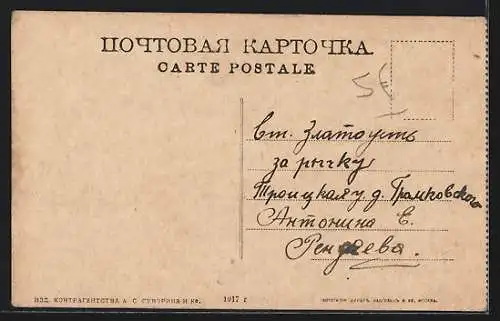 ПОЧТОВАЯ КАРТОЧКА
CARTE POSTALE
Ст. Златоусть
за рѣчку
Троицкая у д. Громковского
Антонина Е.
ИЗД. КОНТРАГЕНТСТВА А. С. СУВОРИНА И Кº.
1917 г.